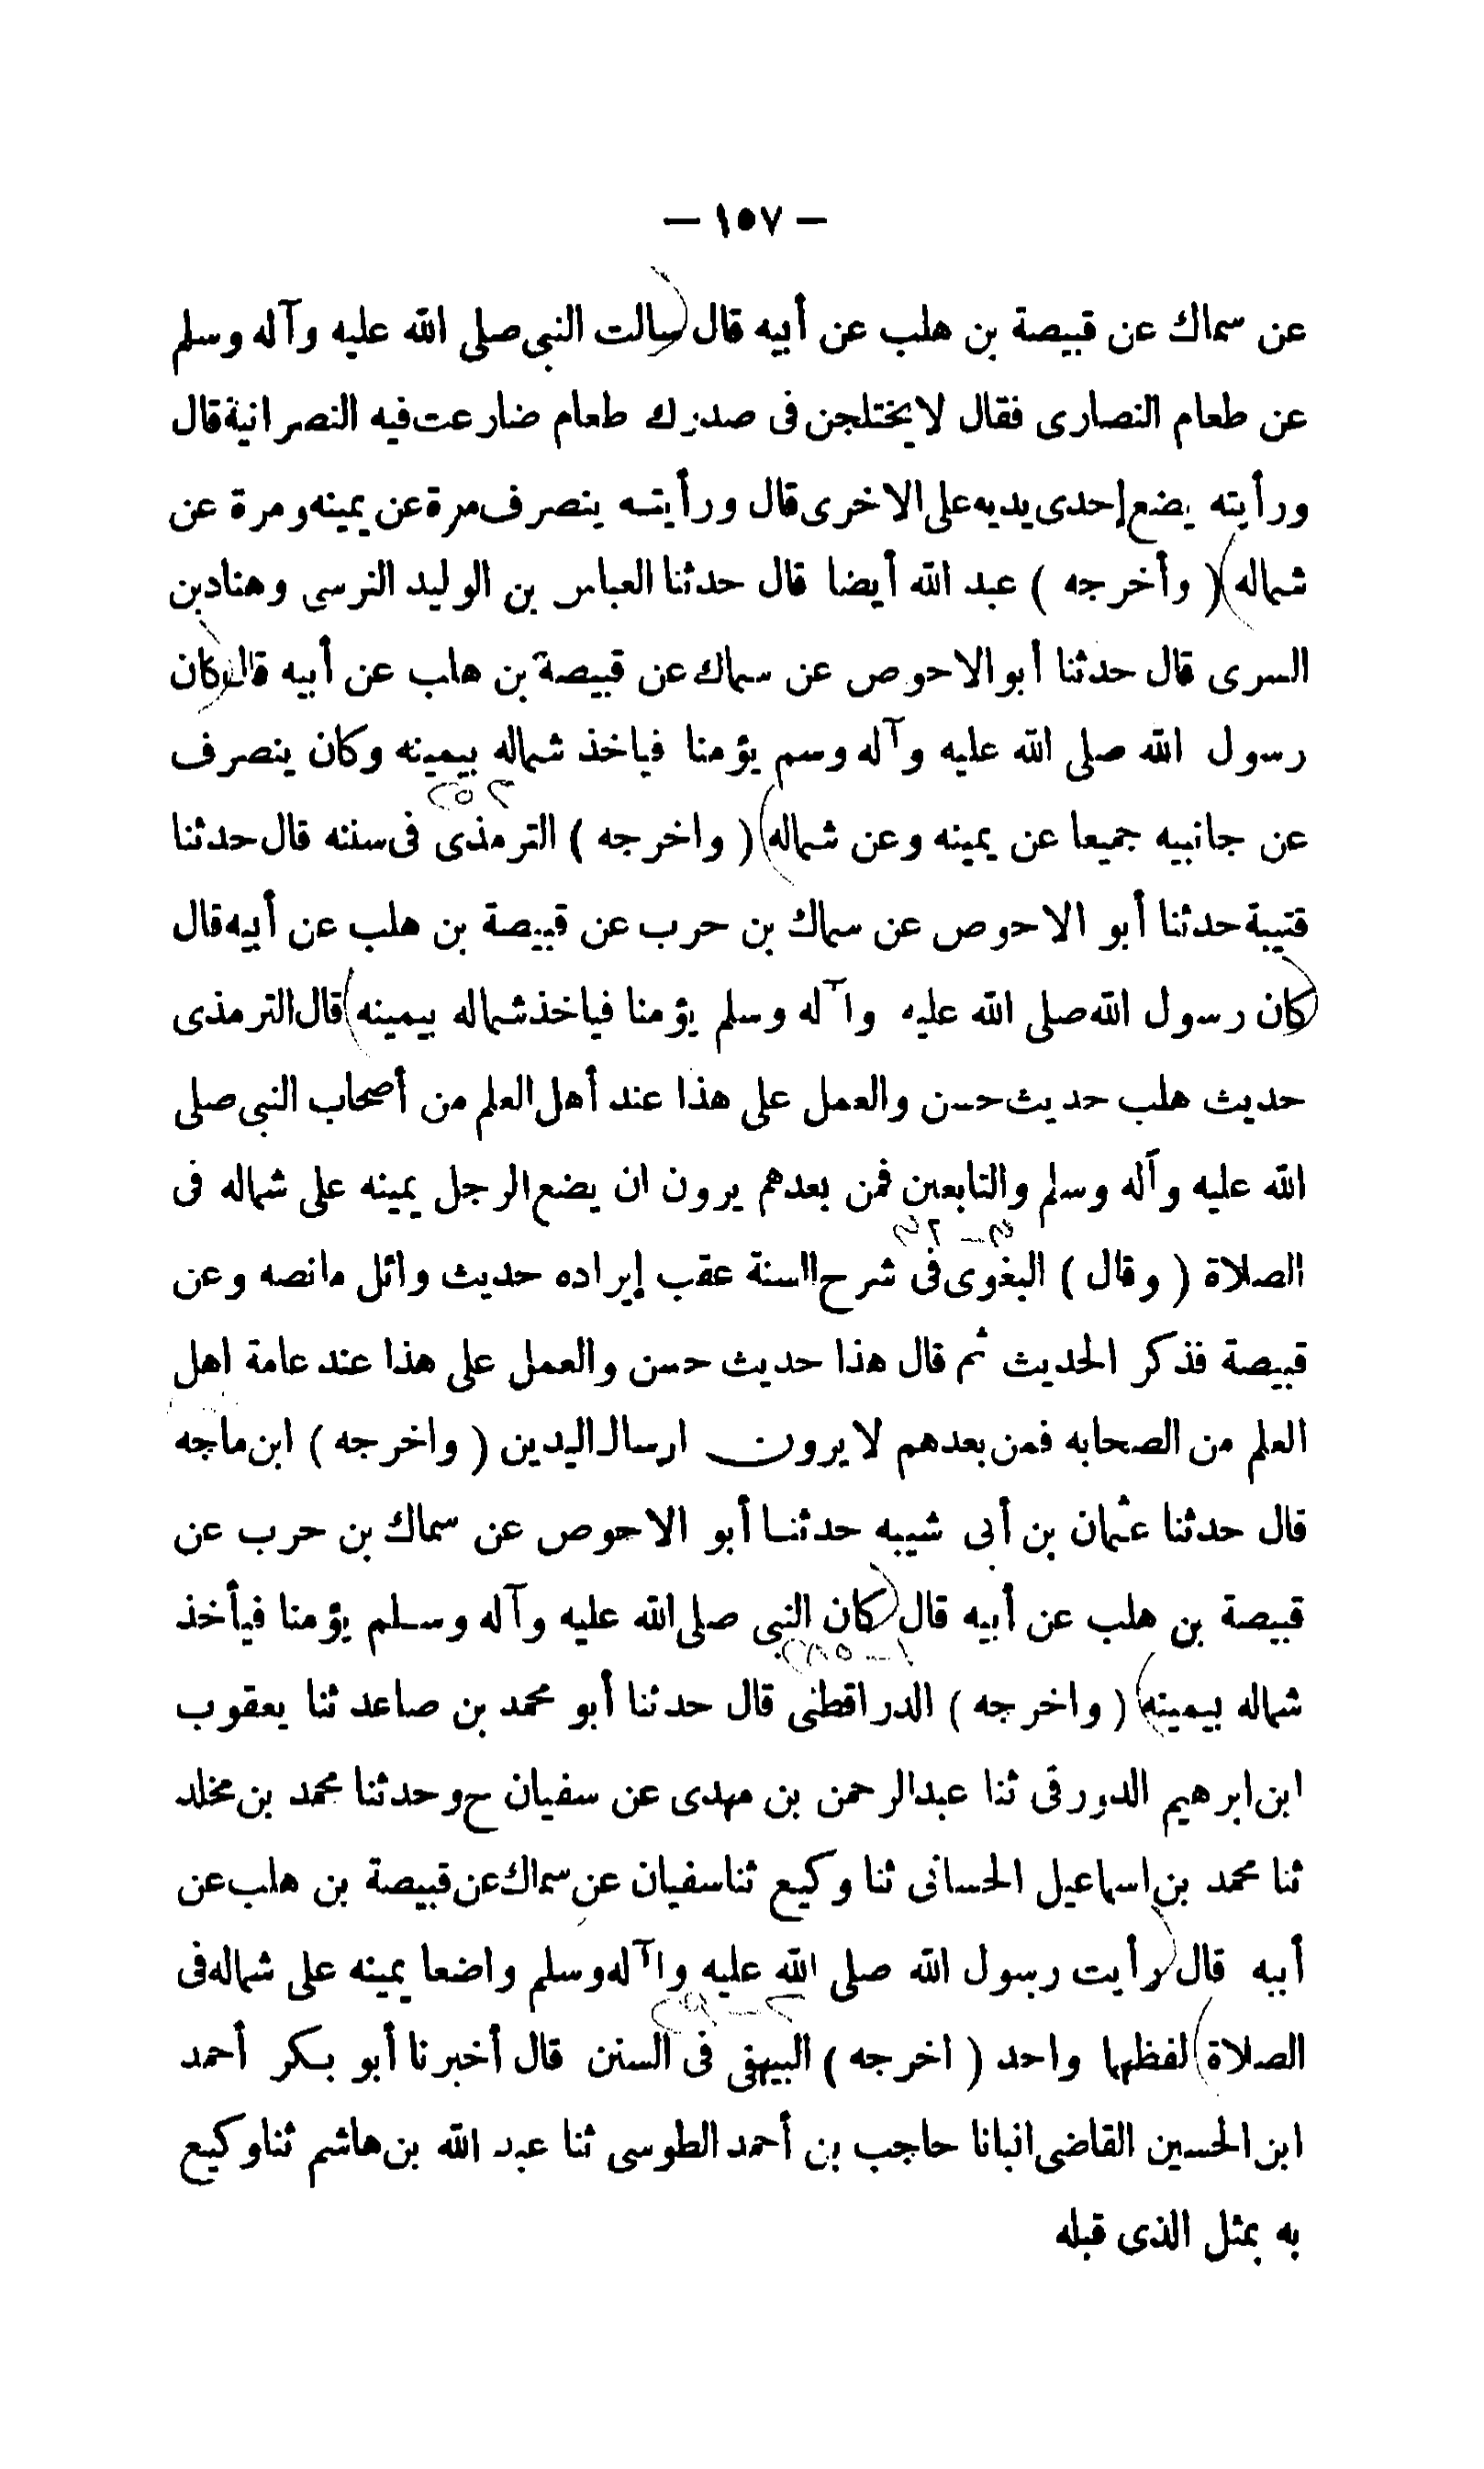 — ١٥٧ —
عن سماك عن قبيصة بن هلب عن أبيه قال (سالت النبى صلى الله عليه وآله وسلم
عن طعام النصارى فقال لا يختلجن فى صدرك طعام ضارعت فيه النصرانية قال
ورأيته يضع إحدى يديه على الاخرى قال ورأيته ينصرف مرة عن يمينه ومرة عن
شماله) (وأخرجه) عبد الله أيضا قال حدثنا العباس بن الوليد النرسى وهناد بن
السرى قال حدثنا أبو الاحوص عن سماك عن قبيصة بن هلب عن أبيه قال (كان
رسول الله صلى الله عليه وآله وسم يؤمنا فياخذ شماله بيمينه وكان ينصرف
عن جانبيه جميعا عن يمينه وعن شماله) (واخرجه) الترمذى فى سننه قال حدثنا
قتيبة حدثنا أبو الاحوص عن سماك بن حرب عن قبيصة بن هلب عن أبيه قال
(كان رسول الله صلى الله عليه وآله وسلم يؤمنا فياخذ شماله بيمينه) قال الترمذى
حديث هلب حديث حسن والعمل على هذا عند أهل العلم من أصحاب النبى صلى
الله عليه وآله وسلم والتابعين فمن بعدهم يرون ان يضع الرجل يمينه على شماله فى
الصلاة (وقال) البغوى فى شرح السنة عقب إيراده حديث وائل مانصه وعن
قبيصة فذكر الحديث ثم قال هذا حديث حسن والعمل على هذا عند عامة اهل
العلم من الصحابه فمن بعدهم لا يرون ارسال اليدين (واخرجه) ابن ماجه
قال حدثنا عثمان بن أبى شيبه حدثنا أبو الاحوص عن سماك بن حرب عن
قبيصة بن هلب عن أبيه قال (كان النبى صلى الله عليه وآله وسلم يؤمنا فيأخذ
شماله بيمينه) (واخرجه) الدراقطنى قال حدثنا أبو محمد بن صاعد ثنا يعقوب
ابن ابرهيم الدورقى ثنا عبد الرحمن بن مهدى عن سفيان ح وحدثنا محمد بن مخلد
ثنا محمد بن اسماعيل الحسانى ثنا وكيع ثنا سفيان عن سماك عن قبيصة بن هلب عن
أبيه قال (رأيت رسول الله صلى الله عليه وآله وسلم واضعا يمينه على شماله فى
الصلاة) لفظهما واحد (اخرجه) البيهقى فى السنن قال أخبرنا أبو بكر أحمد
ابن الحسين القاضى انبانا حاجب بن أحمد الطوسى ثنا عبد الله بن هاشم ثنا وكيع
به بمثل الذى قبله